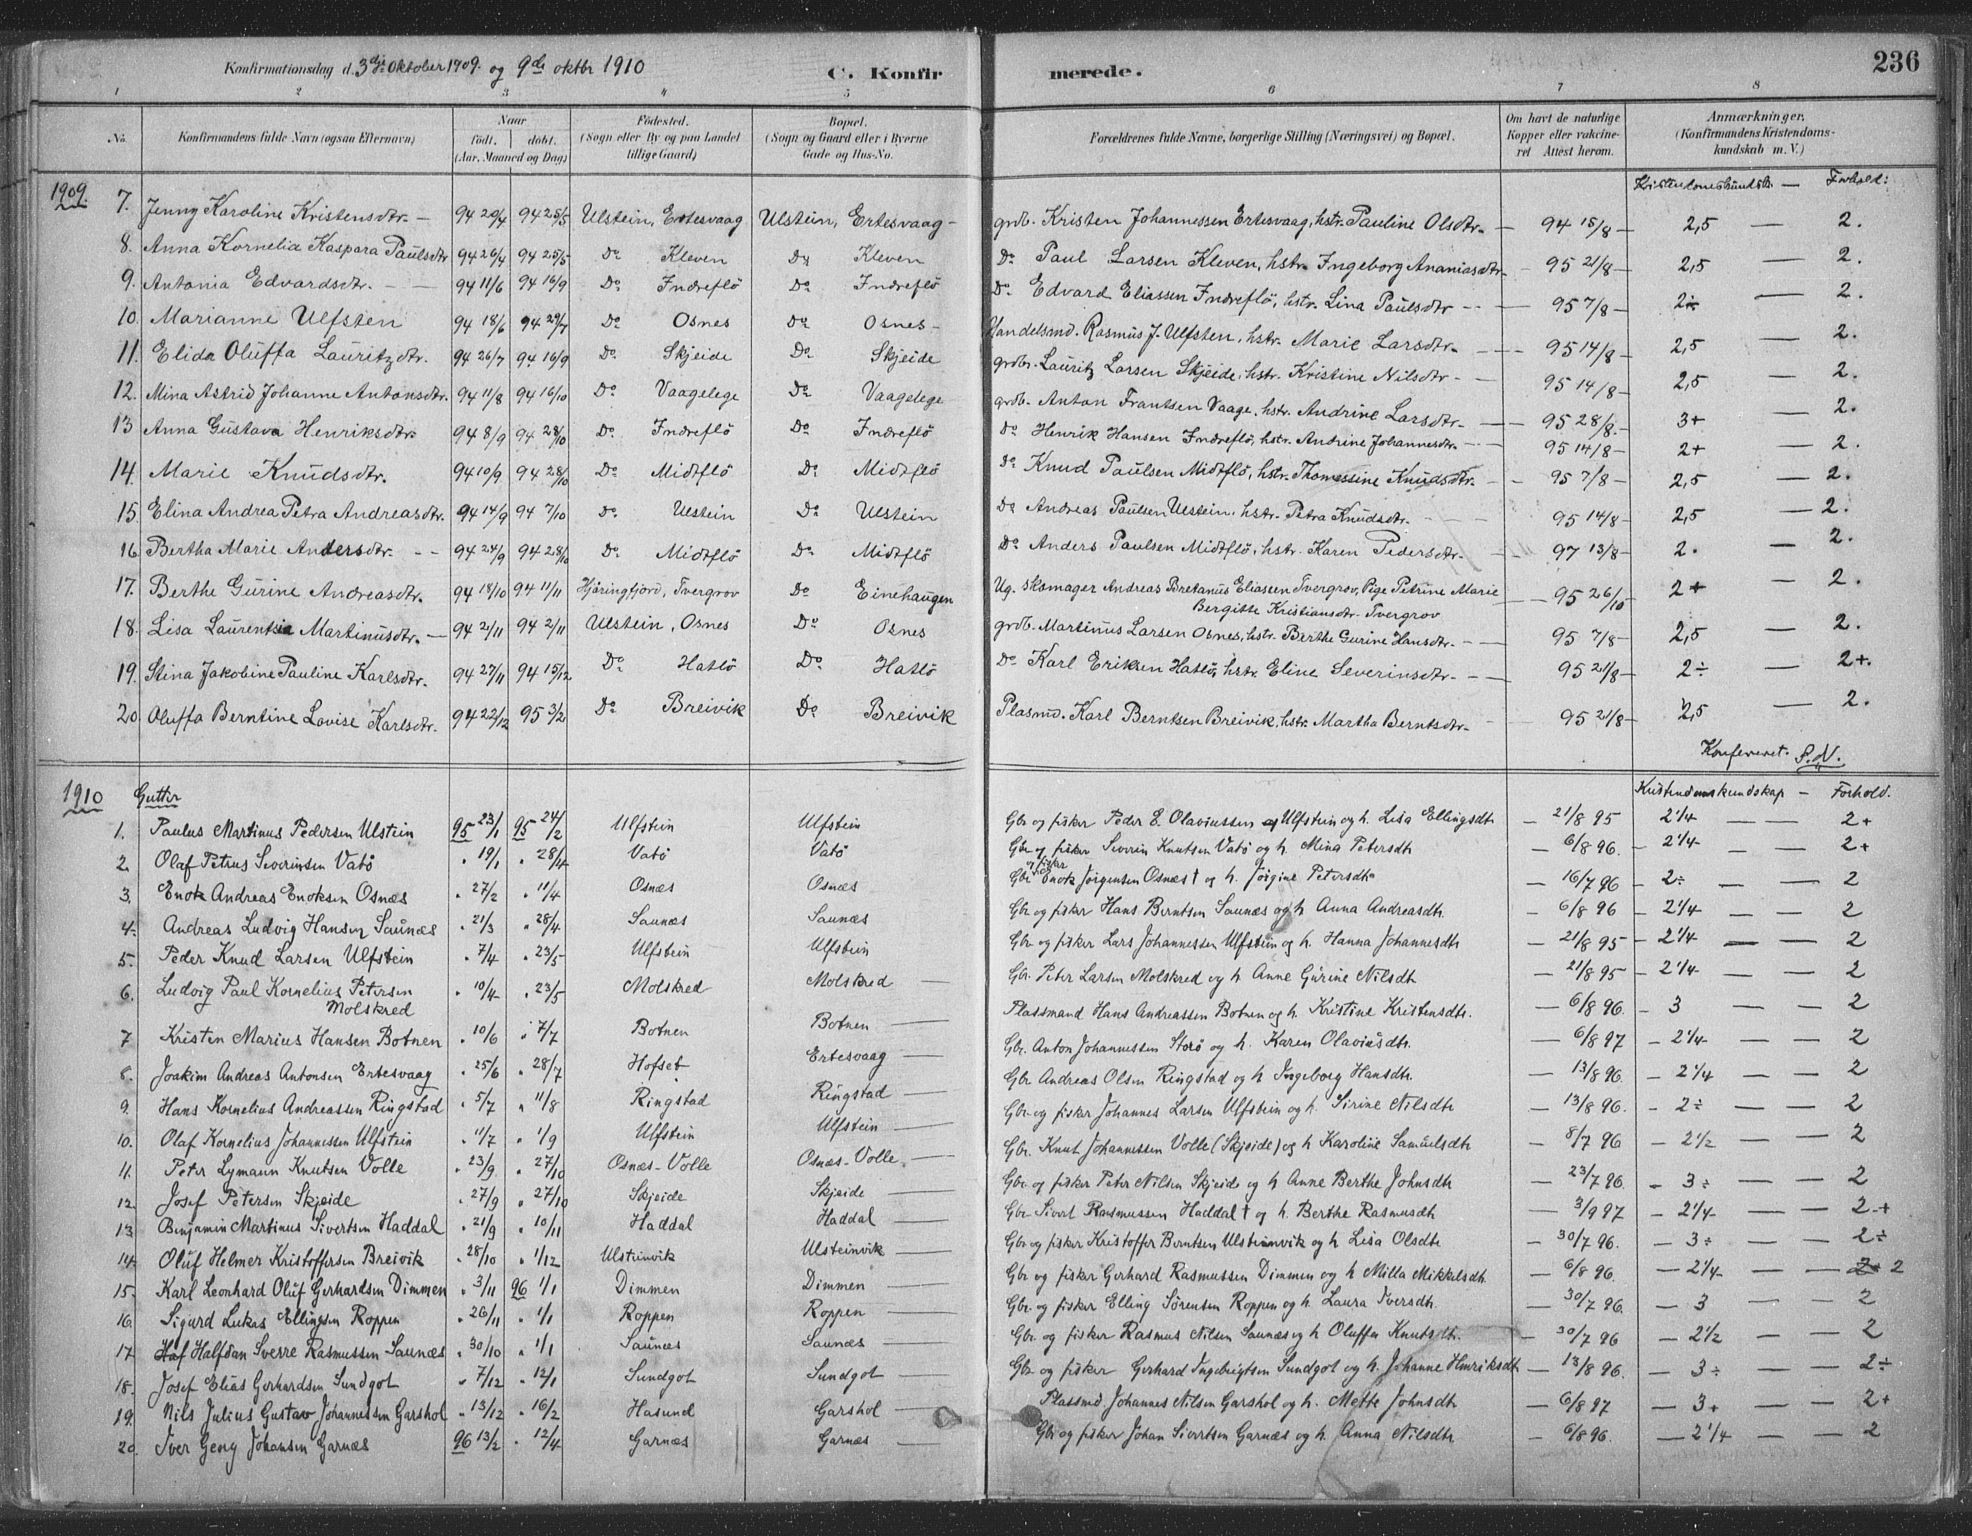 Konfirmationsdag d. 3die Oktober 1909. og 9de oktbr 1910
C. Konfirmerede.
236
1 2 3 4 5 6 7 8
No. Konfirmandens fulde Navn (ogsaa Efternavn) Naar født. døbt. (Aar, Maaned og Dag) Fødested. (Sogn eller By og paa Landet tillige Gaard.) Bopæl. (Sogn og Gaard eller i Byerne Gade og Hus-No. Forældrenes fulde Navne, borgerlige Stilling (Næringsvei) og Bopæl. Om havt de naturlige Kopper eller vakcineret Attest herom. Anmærkninger. (Konfirmandens Kristendomskundskab m. V.)
1909. Kristendomskundsk. — Forhold:
7. Jenny Karoline Kristensdtr. — 94 20/4 94 25/5 Ulstein, Ertesvaag Ulstein, Ertesvaag — grdb. Kristen Johannessen Ertesvaag, hstr. Pauline Olsdtr. — 94 15/8 — 2,5 — 2.
8. Anna Kornelia Kaspara Paulsdtr 94 26/4 94 25/5 Do Kleven Do Kleven Do Paul Larsen Kleven, hstr. Ingeborg Ananiasdtr. - 95 21/8 — 2,5 — 2.
9. Antonia Edvardsdtr. — 94 11/6 94 16/9 Do Indreflö Do Indreflö Do Edvard Eliassen Indreflö, hstr. Lina Paulsdtr — 95 7/8 — 2÷ — 2.
10. Marianne Ulfsten 94 18/6 94 29/7 Do Osnes Do Osnes - Handelsmd. Rasmus J. Ulfsten, hstr. Marie Larsdtr. — 95 14/8 — 2,5 — 2.
11. Elida Oluffa Lauritzdtr. 94 26/7 94 16/9 Do Skjeide Do Skjeide grdbr. Lauritz Larsen Skjeide, hstr. Kristine Nilsdtr - — 95 14/8 — 2,5 — 2.
12. Mina Astrid Johanne Antonsdtr. 94 11/8 94 16/10 Do Vaagelege Do Vaagelege grdb. Anton Frantsen Vaage, hstr. Andrine Larsdtr. — 95 28/8. — 3+ — 2.
13 Anna Gustava Henriksdtr. 94 8/9 94 28/10 Do Indreflö Do Indreflö Do Henrik Hansen Indreflö, hstr. Andrine Johannesdtr. — 95 14/8 — 2+ — 2.
14. Marie Knudsdtr. 94 10/9 94 28/10 Do Midtflö Do Midtflö Do Knud Paulsen Midtflö, hstr. Thomessine Knudsdtr. - 95 7/8 — 2,5 — 2.
15. Elina Andrea Petra Andreasdtr. 94 14/9 94 7/10 Do Ulstein Do Ulstein Do Andreas Paulsen Ulstein, hstr. Petra Knudsdtr. — 95 14/8 — 2,5 — 2.
16. Bertha Marie Andersdtr. - - 94 24/9 94 28/10 Do Midtflö Do Midtflö Do Anders Paulsen Midtflö, hstr. Karen Pedersdtr. — 97 13/8 — 2. — 2.
17. Berthe Gurine Andreasdtr. 94 18/10 94 11/11 Hjöringfjord, Tvergrov Do Einehaugen Ug. Skomager Andreas Bretanus Eliassen Tvergrov, Pige Petrine Marie
Bergitte Kristiansdtr. Tvergrov — 95 26/10 2+ — 2.
18. Lisa Laurentsia Martinusdtr. — 94 2/11 94 2/11 Ulstein, Osnes Do Osnes grdb. Martinus Larsen Osnes, hstr. Berthe Gurine Hansdtr. — 95 7/8 — 2,5 — 2.
19. Stina Jakobine Pauline Karlsdtr. 94 27/11 94 15/12 Do Hatlö Do Hatlö Do Karl Eriksen Hatlö, hstr. Eline Severinsdtr. — 95 21/8 — 2÷ — 2+.
20. Oluffa Berntine Lovise Karlsdtr. 94 22/12 95 3/2 Do Breivik Do Breivik Plasmd. Karl Berntsen Breivik, hstr. Martha Berntsdtr. — 95 21/8 — 2,5 — 2.
Konfereret. P.N.
1910 Gutter Kristendomskundskap — Forhold.
1. Paulus Martinus Pedersen Ulstein 95 23/1 95 24/2 Ulfstein Ulfstein Gbr og fisker Peder E. Olaviussen Ulfstein og h. Lisa Ellingsdtr — 21/8 95 2 1/4 — 2+
2. Olaf Petrus Severinsen Vatö " 19/1 " 28/4 Vatö Vatö Gbr og fisker Severin Knutsen Vatö og h. Mina Petersdtr — 6/8 96. — 2 1/4 — 2+
3. Enok Andreas Enoksen Osnæs " 27/2 " 11/4 Osnæs Osnæs Gbr og fisker Enok Jörgensen Osnæs † og h. Jörgine Petersdtr — 16/7 96 — 2÷ — 2
4. Andreas Ludvig Hansen Saunæs " 21/3 " 28/4 Saunæs Saunæs Gbr og fisker Hans Berntsen Saunæs og h. Anna Andreasdtr. — 6/8 96 — 2 1/4 — 2
5. Peder Knud Larsen Ulfstein " 7/4 " 23/5 Ulfstein Ulfstein Gbr og fisker Lars Johannessen Ulfstein og h. Hanna Johannesdtr — 21/8 95 — 2 1/4 — 2
6. Ludvig Paul Kornelius Petersen
Molskred " 10/4 " 23/5 Molskred Molskred — Gbr. Peter Larsen Molskred og h. Anne Gurine Nilsdtr — 21/8 95 — 2 1/4 — 2
7 Kristen Marius Hansen Botnen " 10/6 " 7/7 Botnen Botnen — Plassmand Hans Andreassen Botnen og h. Kristine Kristensdtr. — 6/8 96. — 3 — 2
8. Joakim Andreas Antonsen Ertesvaag " 25/6 " 28/7 Hofset Ertesvaag — Gbr. Anton Johannessen Storö og h. Karen Olaviusdtr. — 6/8 97 — 2 1/4 — 2
9. Hans Kornelius Andreassen Ringstad " 5/7 " 11/8 Ringstad Ringstad — Gbr. Andreas Olsen Ringstad og h. Ingeborg Hansdtr. — 13/8 96. — 2 1/4 — 2
10. Olaf Kornelius Johannessen Ulfstein " 11/7 " 1/9 Ulfstein Ulfstein — Gbr. og fisker Johannes Larsen Ulfstein og h. Sirine Nilsdtr — 13/8 96. — 2÷ — 2
11. Peter Lymann Knutsen Volle " 23/9 " 27/10 Osnæs-Volle Osnæs-Volle. — Gbr. Knut Johannessen Volle (Skjeide) og h. Karoline Samuelsdtr — 8/7 96 — 2 1/2 — 2
12. Josef Petersen Skjeide " 27/9 " 27/10 Skjeide Skjeide — Gbr. og fisker Peter Nilsen Skjeide og h. Anne Berthe Johnsdtr — 23/7 96. — 3÷ — 2
13. Benjamin Martinus Sivertsen Haddal " 21/9 " 10/11 Haddal Haddal — Gbr Sivert Rasmussen Haddal † og h. Berthe Rasmusdtr — 3/9 97 — 2 1/4 — 2+
14. Oluf Helmer Kristoffersen Breivik " 28/10 " 1/12 Ulsteinvik Ulsteinvik — Gbr. og fisker Kristoffer Berntsen Ulsteinvik og h. Lisa Olsdtr — 30/7 96. — 3÷ — 2÷
15. Karl Leonhard Oluf Gerhardsen Dimmen " 3/11 96 1/1 Dimmen Dimmen — Gbr og fisker Gerhard Rasmussen Dimmen og h. Milla Mikkelsdtr. — 6/8 96. — 2 1/4 — 2
16. Sigurd Lukas Ellingsen Roppen " 26/11 " 1/1 Roppen Roppen — Gbr. og fisker Elling Sörensen Roppen og h. Laura Iversdtr. — 30/7 96. — 3 — 2
17 Halfdan Sverre Rasmussen Saunæs " 30/10 " 1/1 Saunæs Saunæs — Gbr. og fisker Rasmus Nilsen Saunæs og h. Oluffa Knutsdtr. — 30/7 96 — 2 1/2 — 2
18. Josef Elias Gerhardsen Sundgot " 7/12 " 12/1 Sundgot Sundgot — Gbr og fisker Gerhard Ingebrigtsen Sundgot og h. Johanne Henriksdtr — 13/8 96. — 3÷ — 2÷
19. Nils Julius Gustav Johannessen Garshol " 13/12 " 16/2 Hasund Garshol — Plassmd Johannes Nilsen Garshol og h. Mette Johnsdtr — 6/8 97 — 3+ — 2+
20. Iver Georg Johansen Garnæs 96 13/2 " 12/4 Garnæs Garnæs — Gbr og fisker Johan Sivertsen Garnæs og h. Anna Nilsdtr — 6/8 96. — 2 1/4 — 2